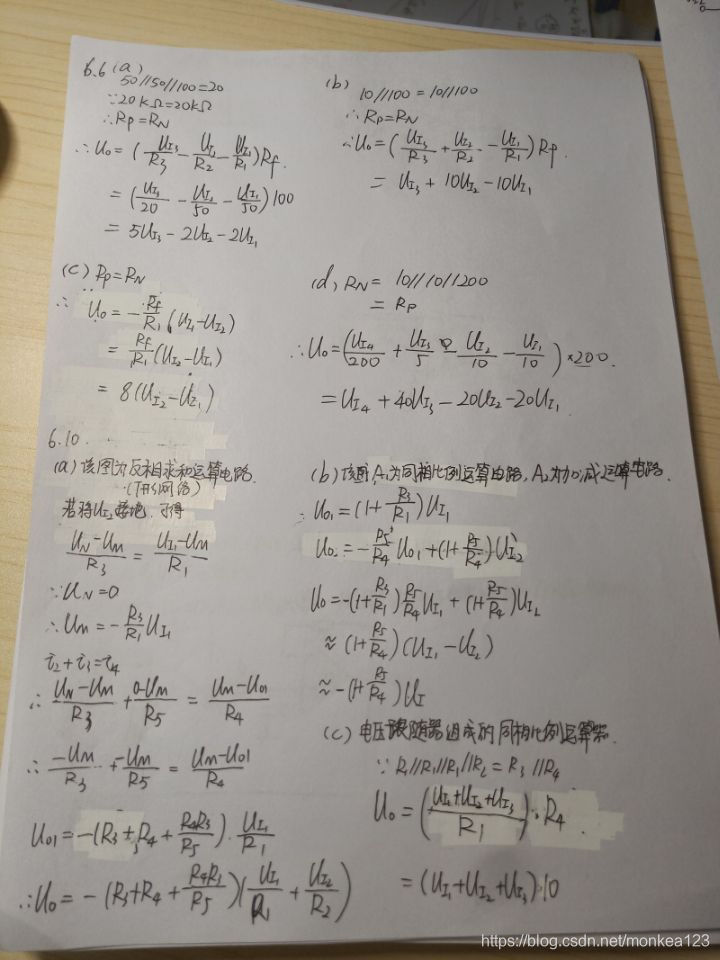 6.6 (a)
50//50//100=20
∵20kΩ=20kΩ
∴Rp=RN
∴Uo=(UI3/R3-UI2/R2-UI1/R1)Rf
=(UI3/20-UI2/50-UI1/50)100
=5UI3-2UI2-2UI1
(b)
10//100=10//100
∴Rp=RN
∴Uo=(UI3/R3+UI2/R2-UI1/R1)Rp
=UI3+10UI2-10UI1
(c) Rp=RN
∴Uo=-Rf/R1(UI1-UI2)
=Rf/R1(UI2-UI1)
=8(UI2-UI1)
(d) RN=10//10//200
=Rp
∴Uo=(UI4/200+UI3/5-UI2/10-UI1/10)×200
=UI4+40UI3-20UI2-20UI1
6.10
(a)该图为反相求和运算电路.
(T形网络)
若将UI2接地,可得
(UN-UM)/R3=(UI1-UM)/R1
∵UN=0
∴UM=-R3/R1 UI1
i2+i3=i4
∴(UN-UM)/R3+(0-UM)/R5=(UM-U01)/R4
∴-UM/R3+-UM/R5=(UM-U01)/R4
U01=-(R3+R4+R4R3/R5)·UI1/R1
∴Uo=-(R3+R4+R4R3/R5)(UI1/R1+UI2/R2)
(b)该题A1为同相比例运算电路,A2为加减运算电路
∴U01=(1+R3/R1)UI1
Uo=-R5/R4 U01+(1+R5/R4)UI2
Uo=-(1+R3/R1)R5/R4 UI1+(1+R5/R4)UI2
≈(1+R5/R4)(UI1-UI2)
≈-(1+R5/R4)UI
(c)电压跟随器组成的同相比例运算器.
∵R1//R1//R1//R2=R3//R4
Uo=((UI1+UI2+UI3)/R1)·R4
=(UI1+UI2+UI3)·10
https://blog.csdn.net/monkea123